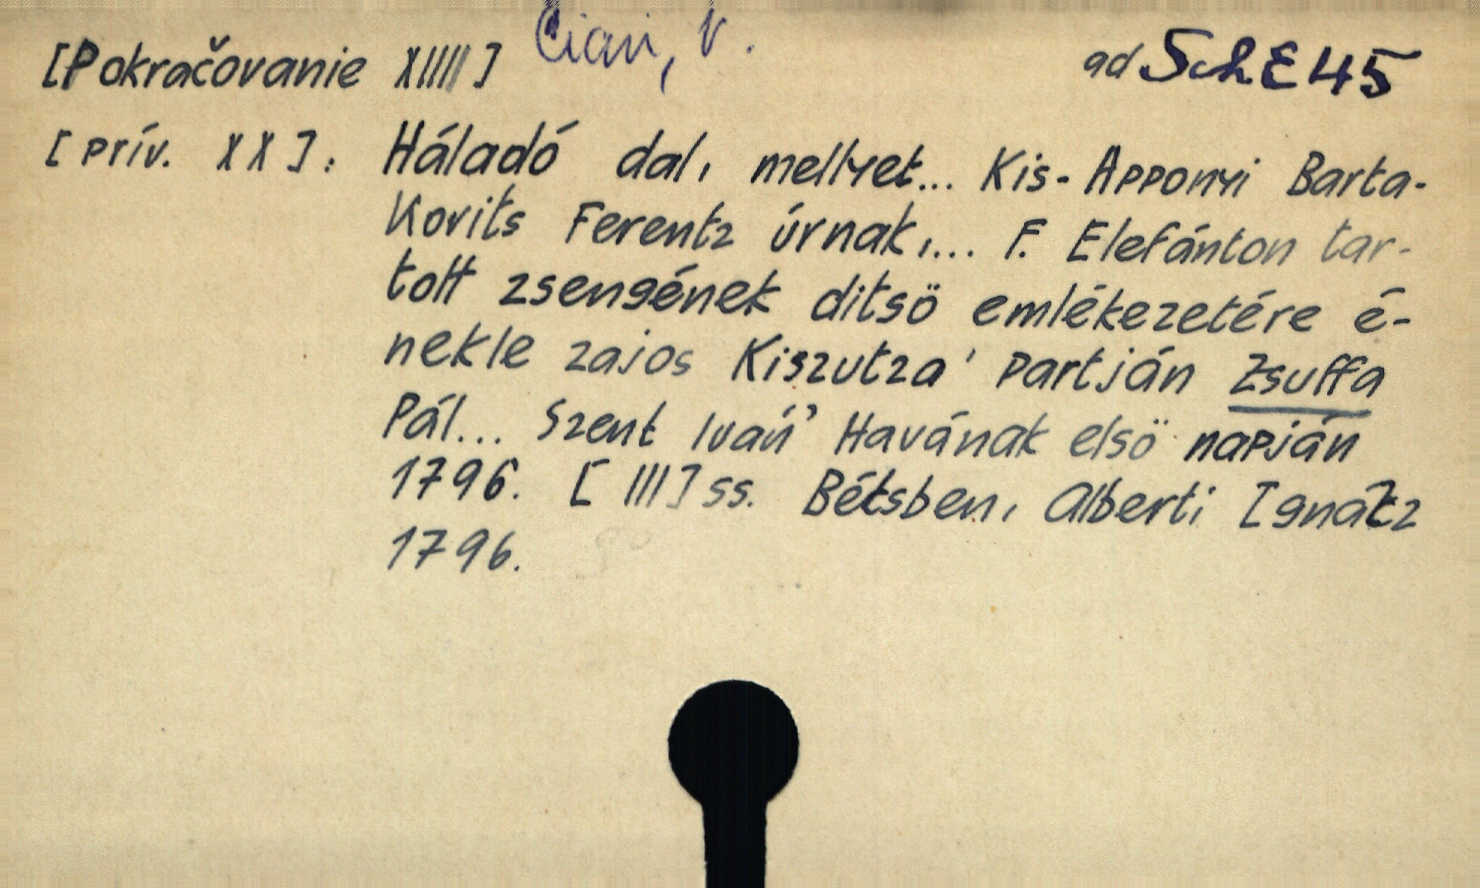 [Pokračovanie XIIII] Cian, V. ad Sch E 45
[prív. XX]: Háladó dal, mellyet... Kis-Apponyi Barta-
kovits Ferentz úrnak,... F. Elefánton tar-
tott zsengének ditsö emlékezetére é-
nekle zajos Kiszutza' partján Zsuffa
Pál... Szent Iván' Havának elsö napján
1796. [III] ss. Bétsben, Alberti Ignátz
1796.